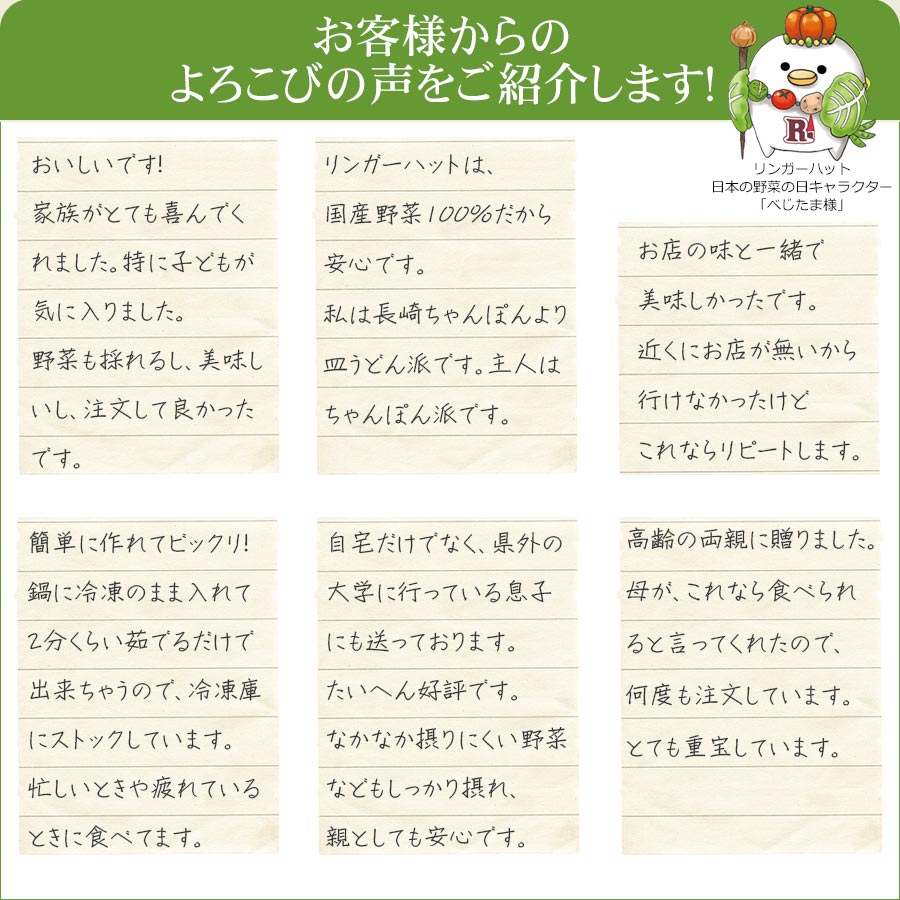 お客様からの
よろこびの声をご紹介します!
R
リンガーハット
日本の野菜の日キャラクター
「べじたま様」
おいしいです!
家族がとても喜んでく
れました。特に子どもが
気に入りました。
野菜も採れるし、美味し
いし、注文して良かった
です。
リンガーハットは、
国産野菜100%だから
安心です。
私は長崎ちゃんぽんより
皿うどん派です。主人は
ちゃんぽん派です。
お店の味と一緒で
美味しかったです。
近くにお店が無いから
行けなかったけど
これならリピートします。
簡単に作れてビックリ!
鍋に冷凍のまま入れて
2分くらい茹でるだけで
出来ちゃうので、冷凍庫
にストックしています。
忙しいときや疲れている
ときに食べてます。
自宅だけでなく、県外の
大学に行っている息子
にも送っております。
たいへん好評です。
なかなか摂りにくい野菜
などもしっかり摂れ、
親としても安心です。
高齢の両親に贈りました。
母が、これなら食べられ
ると言ってくれたので、
何度も注文しています。
とても重宝しています。